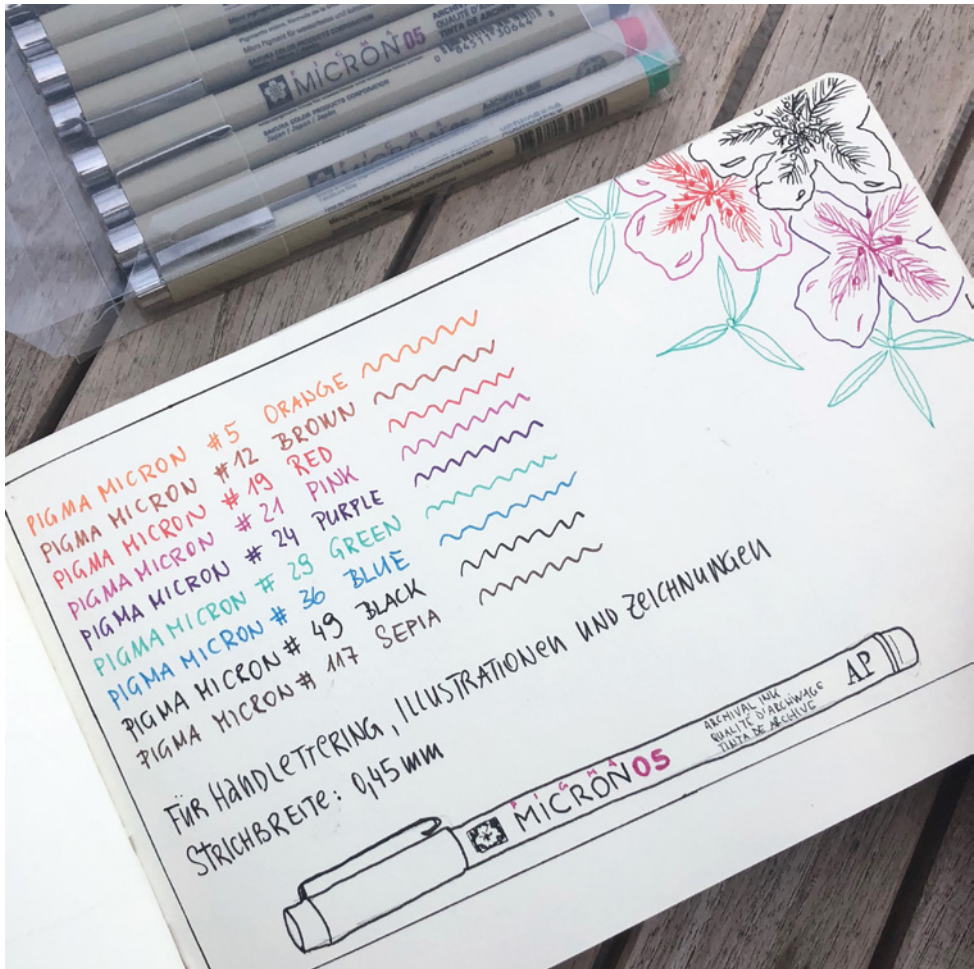 PIGMA
MICRON 05
SAKURA COLOR PRODUCTS CORPORATION
Japan / Japon / Japan
ARCHIVAL INK
PIGMA MICRON #5 ORANGE
PIGMA MICRON #12 BROWN
PIGMA MICRON #19 RED
PIGMA MICRON #21 PINK
PIGMA MICRON #24 PURPLE
PIGMA MICRON #29 GREEN
PIGMA MICRON #36 BLUE
PIGMA MICRON #49 BLACK
PIGMA MICRON #117 SEPIA
FÜR HANDLETTERING, ILLUSTRATIONEN UND ZEICHNUNGEN
STRICHBREITE: 0,45mm
PIGMA
MICRON 05
ARCHIVAL INK
QUALITÉ D'ARCHIVAGE
TINTA DE ARCHIVE
AP